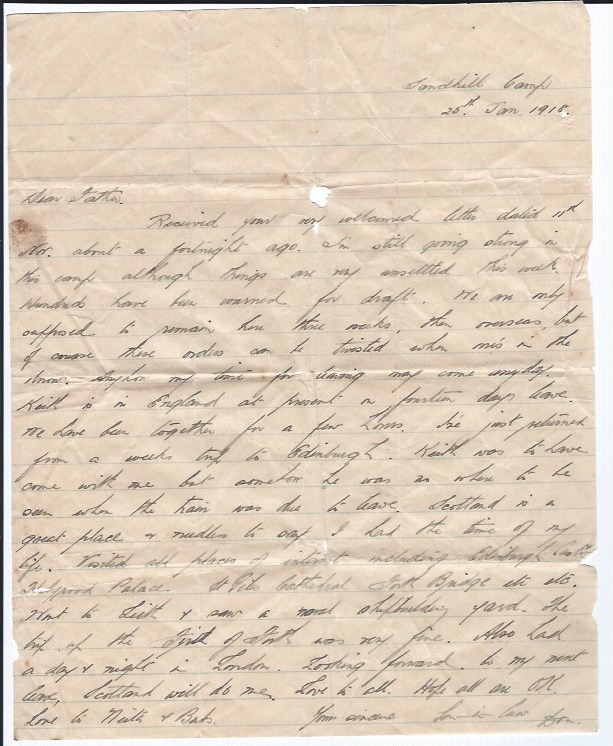 Sandhill Camp
25th Jan 1918.
Dear Father.
Received your very welcomed letter dated 11th
Nov. about a fortnight ago. I'm still going strong in
this camp although things are very unsettled this week.
Hundreds have been warned for draft. We are only
supposed to remain here three weeks, then overseas, but
of course these orders can be twisted when one's in the
know. Anyhow my time for leaving may come anyday.
Keith is in England at present on fourteen days leave.
We have been together for a few hours. I've just returned
from a weeks trip to Edinburgh. Keith was to have
come with me but somehow he was no where to be
seen when the train was due to leave. Scotland is a
great place & needless to say I had the time of my
life. Visited all places of interest including Edinburgh Castle
Holyrood Palace. St Giles Cathedral Forth Bridge etc etc.
Went to Leith & saw a naval shipbuilding yard. The
trip up the Firth of Forth was very fine. Also had
a day & night in London. Looking forward to my next
leave, Scotland will do me. Love to all. Hope all are OK.
Love to & Babs. Your sincere Son-in-law Don.